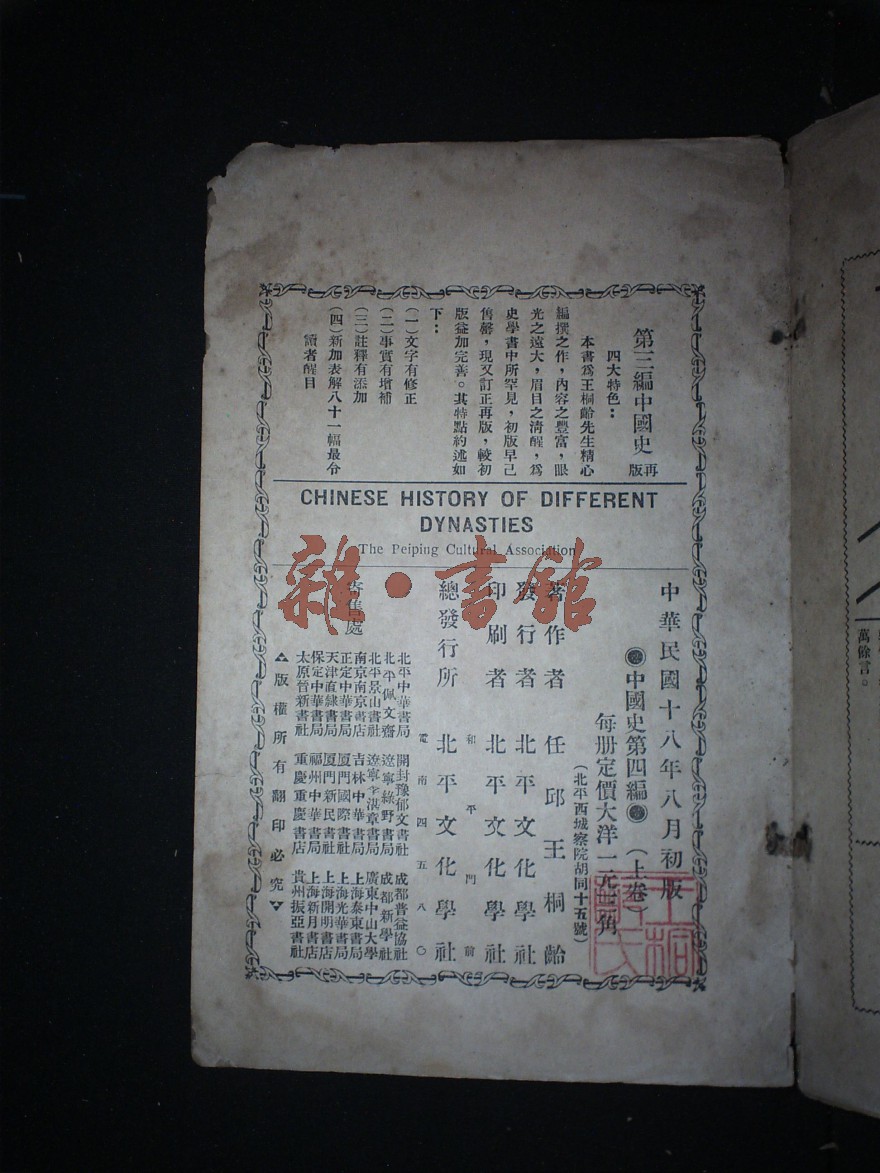 第三編中國史 再版
四大特色：
本書爲王桐齡先生精心
編撰之作，內容之豐富，眼
光之遠大，眉目之清醒，爲
史學書中所罕見，初版早已
售罄，現又訂正再版，較初
版益加完善。其特點約述如
下：
(一)文字有修正
(二)事實有增補
(三)註釋有添加
(四)新加表解八十一幅最令
讀者醒目
CHINESE HISTORY OF DIFFERENT
DYNASTIES
The Peiping Cultural Association
中華民國十八年八月初版
中國史第四編 (上卷)
每册定價大洋一元二角
(北平西城察院胡同十五號)
著作者 任邱王桐齡
發行者 北平文化學社
印刷者 北平文化學社
和平門前
總發行所 北平文化學社
電南四五八〇
寄售處
北平中華書局 開封豫郁文書社 成都普益協社
北平佩文齋 遼寧綠野書局 成都新學社
北平景山書社 遼寧李湛章書局 廣東中山大學
南京南京書店 吉林中華書局 上海泰東書局
正定中華書局 廈門國際書社 上海光華書局
天津直隸書局 廈門新民書社 上海開明書店
保定中華書局 福州中華書局 上海新月書店
太原晉新書社 重慶重慶書店 貴州振亞書社
版權所有翻印必究
雜·書館
萬餘言。